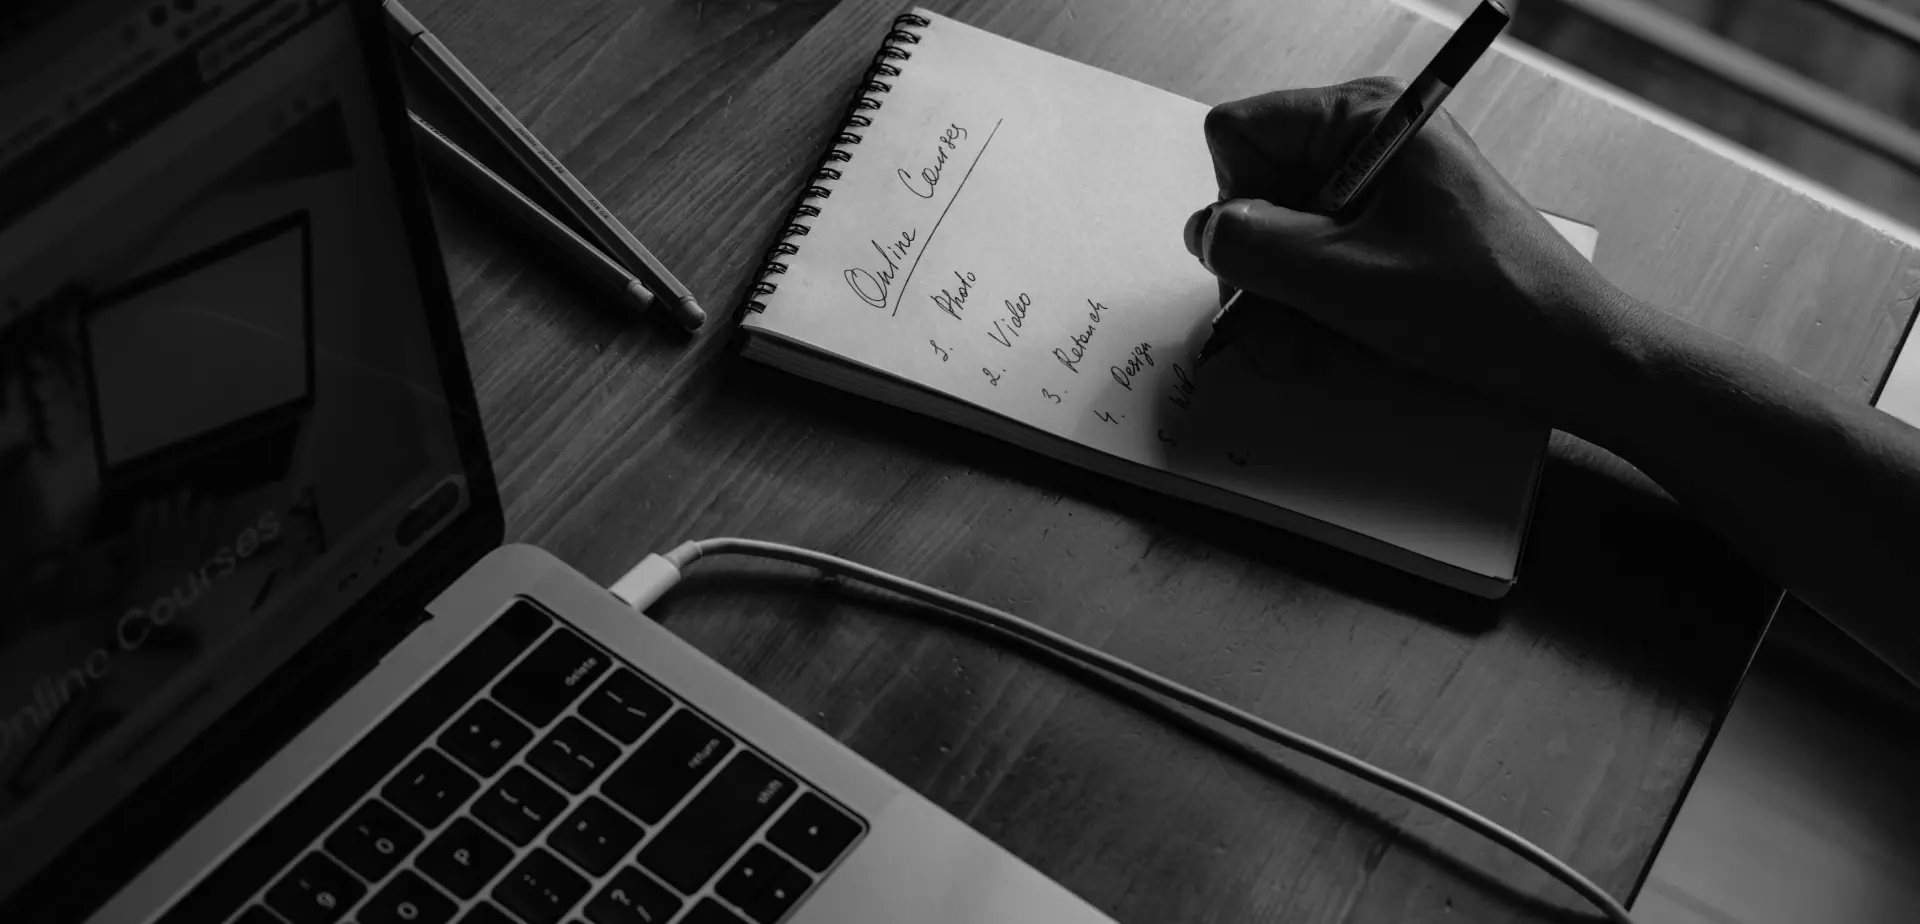 Online Courses
1. Photo
2. Video
3. Retouch
4. Design
5
6.
Online Courses
delete
return
shift
P
O